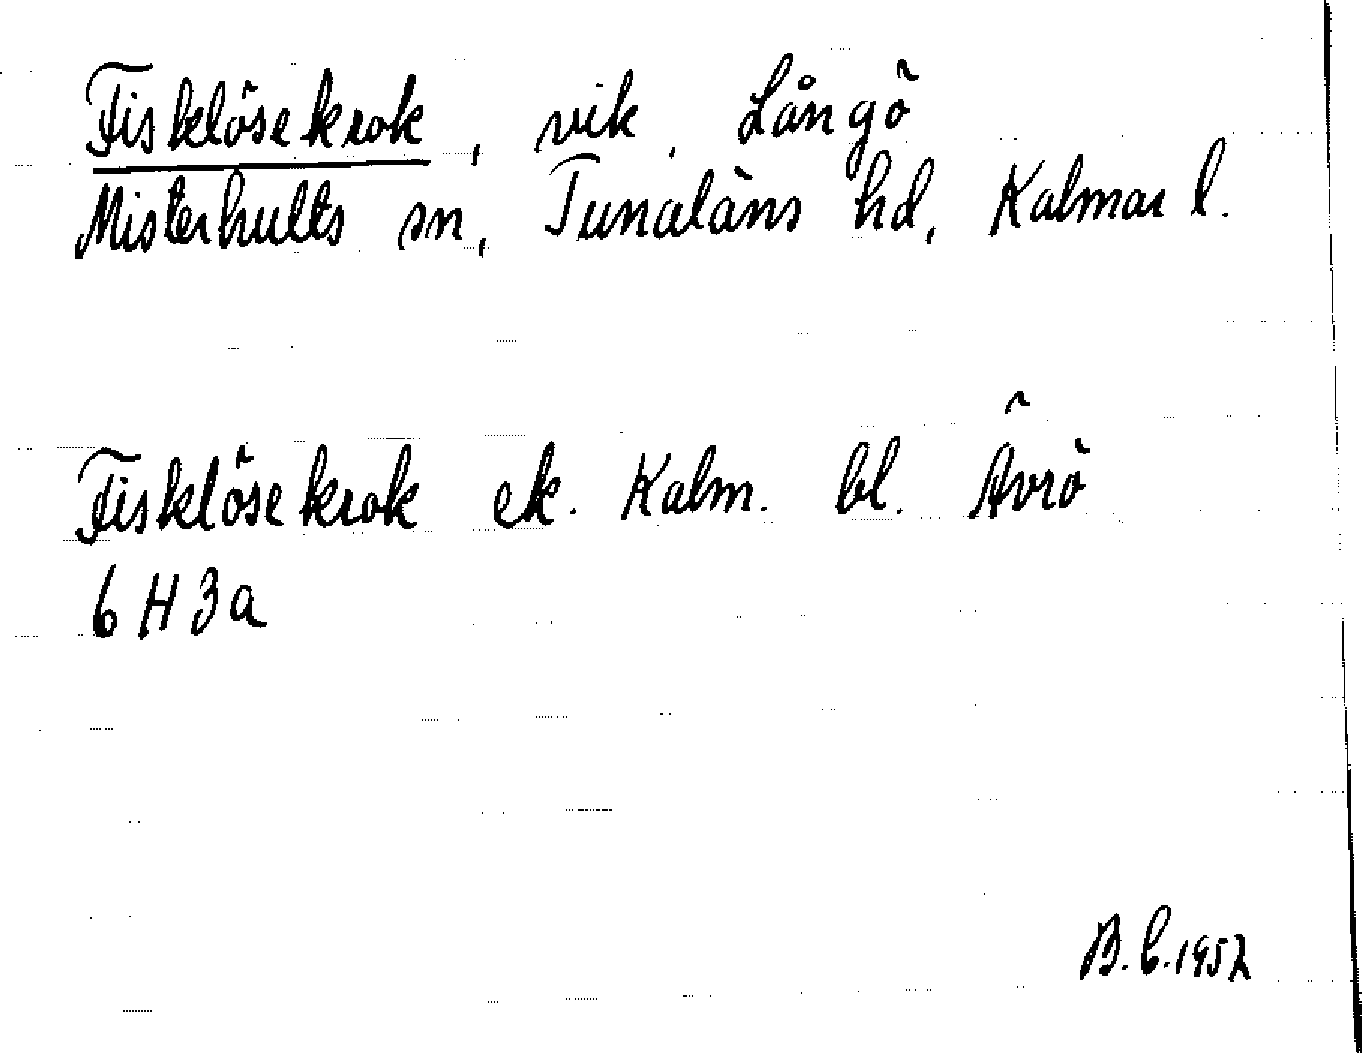 Fisklösekrok, vik, Långö
Misterhults sn, Tunaläns hd, Kalmar l.
Fisklösekrok ek. Kalm. bl. Ävrö
6 H 3a
B.C. 1952